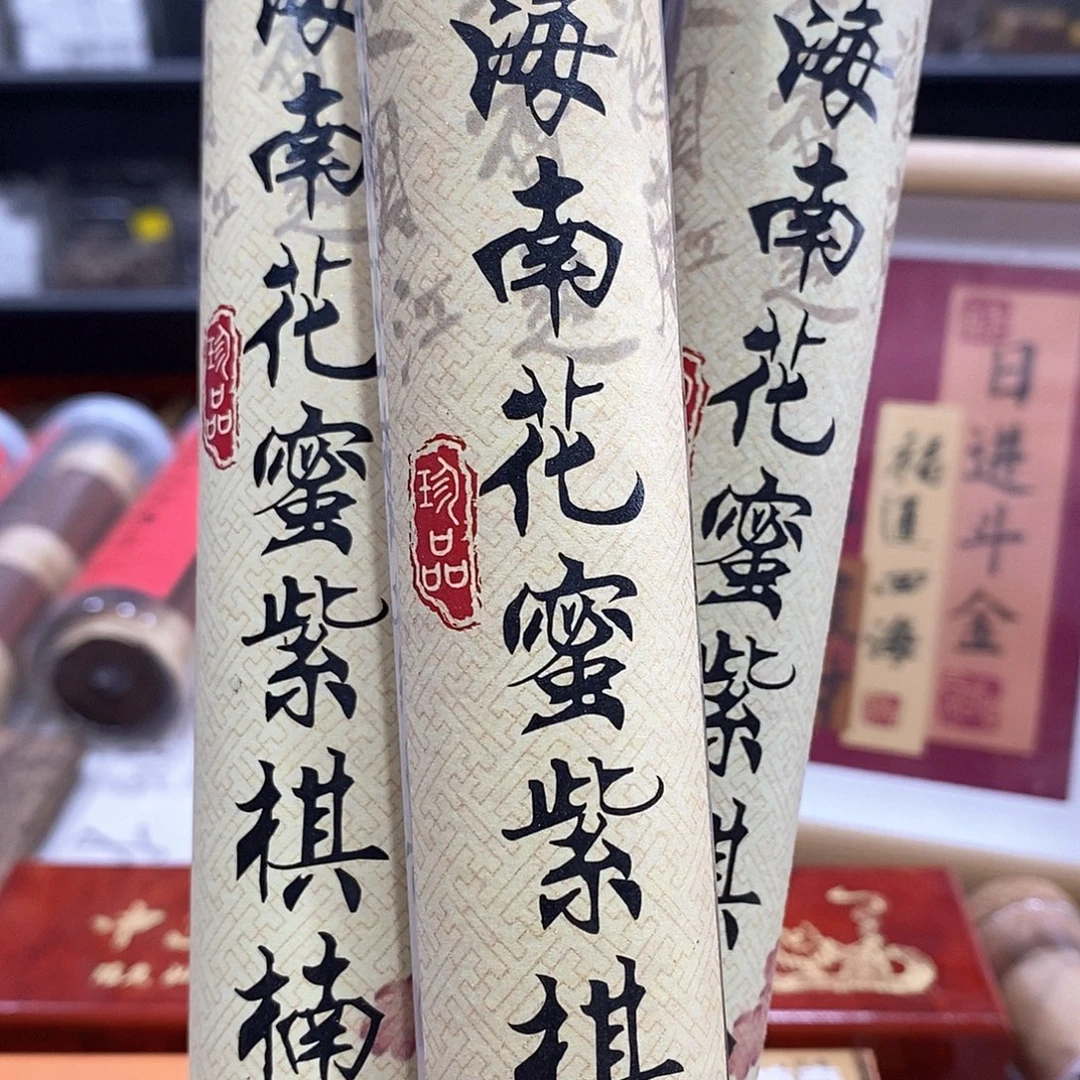 海南花蜜紫棋楠
珍品
海南花蜜紫棋
珍品
海南花蜜紫棋
日进斗金
福运四海